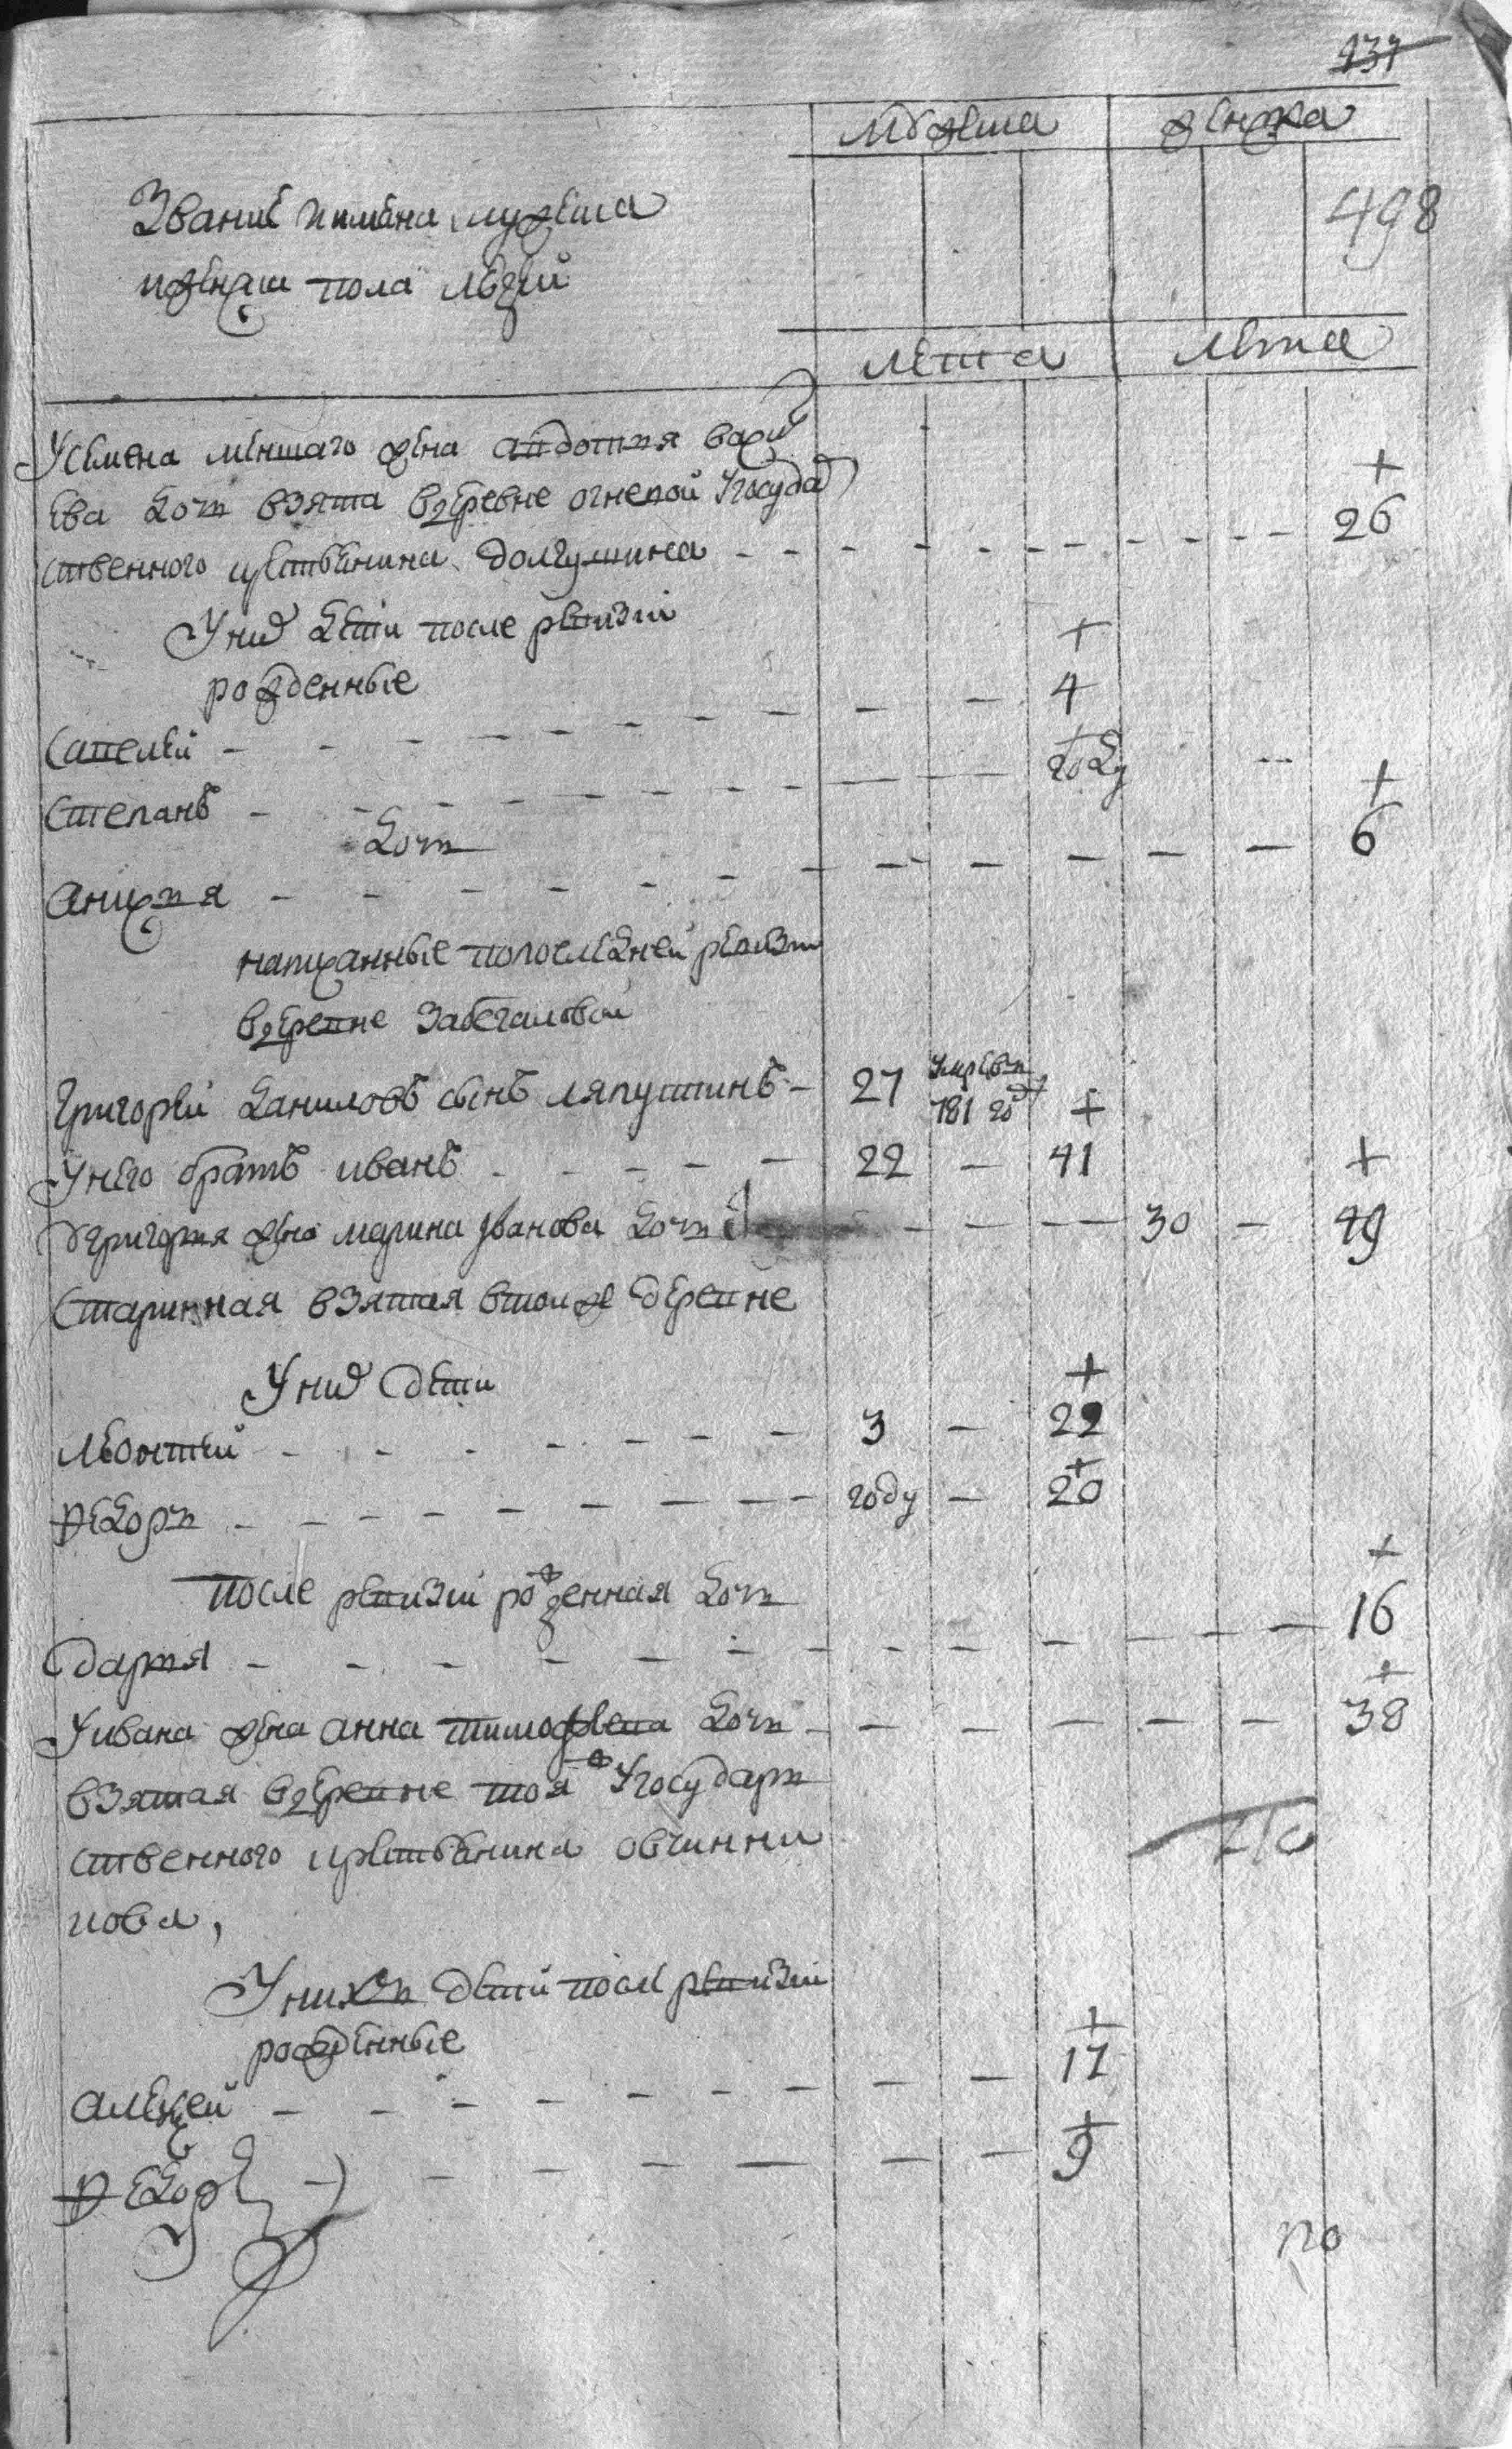 937
Мужеска женска
498
Звание и имена мужеска
и женска пола людей
лета лета
У семена меншаго жена авдотья васил
ева доч взята в деревне огневой у государ
ственного крестьянина долгушина - - - 26
У них дети после ревизии
рожденные
Савелей - - - 4
Степанъ - - - году
доч
анисья - - - 6
написанные по последней ревизи
в деревне Забегаловой
Григорей даниловъ сынъ ляпустинъ - 27 умре в 781 году
У него братъ иванъ - - - 22 - 41
У григорья жена марина Иванова доч - - - 30 - 49
Старинная взятая в той же деревне
У них дети
леонтей - - - 3 - 22
Федоръ - - - году - 20
после ревизии рожденная доч
дарья - - - 16
У ивана жена анна тимофеева доч - - - 38
взятая в деревне той ж У государ
ственного крестьянина овчинни
кова,
У нихъ дети после ревизии
рожденные
алексей - - - 17
Федоръ - - - 9